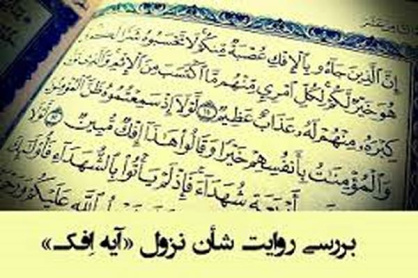 إِنَّ الَّذِينَ جَاءُو بِالْإِفْكِ عُصْبَةٌ مِنْكُمْ لَا تَحْسَبُوهُ شَرًّا
هُوَ خَيْرٌ لَكُمْ لِكُلِّ امْرِئٍ مِنْهُمْ مَا اكْتَسَبَ مِنَ الْإِثْمِ وَالَّذِي تَوَلَّى
كِبْرَهُ مِنْهُمْ لَهُ عَذَابٌ عَظِيمٌ ﴿١١﴾ لَوْلَا إِذْ سَمِعْتُمُوهُ ظَنَّ الْمُؤْمِنُونَ
وَالْمُؤْمِنَاتُ بِأَنْفُسِهِمْ خَيْرًا وَقَالُوا هَذَا إِفْكٌ مُبِينٌ ﴿١٢﴾ لَوْلَا
شُهَدَاءَ فَإِذْ لَمْ يَأْتُوا بِالشُّهَدَاءِ فَأُولَئِكَ
اللَّهِ عَلَيْكُمْ
بررسی روایت شأن نزول «آیه اِفک»